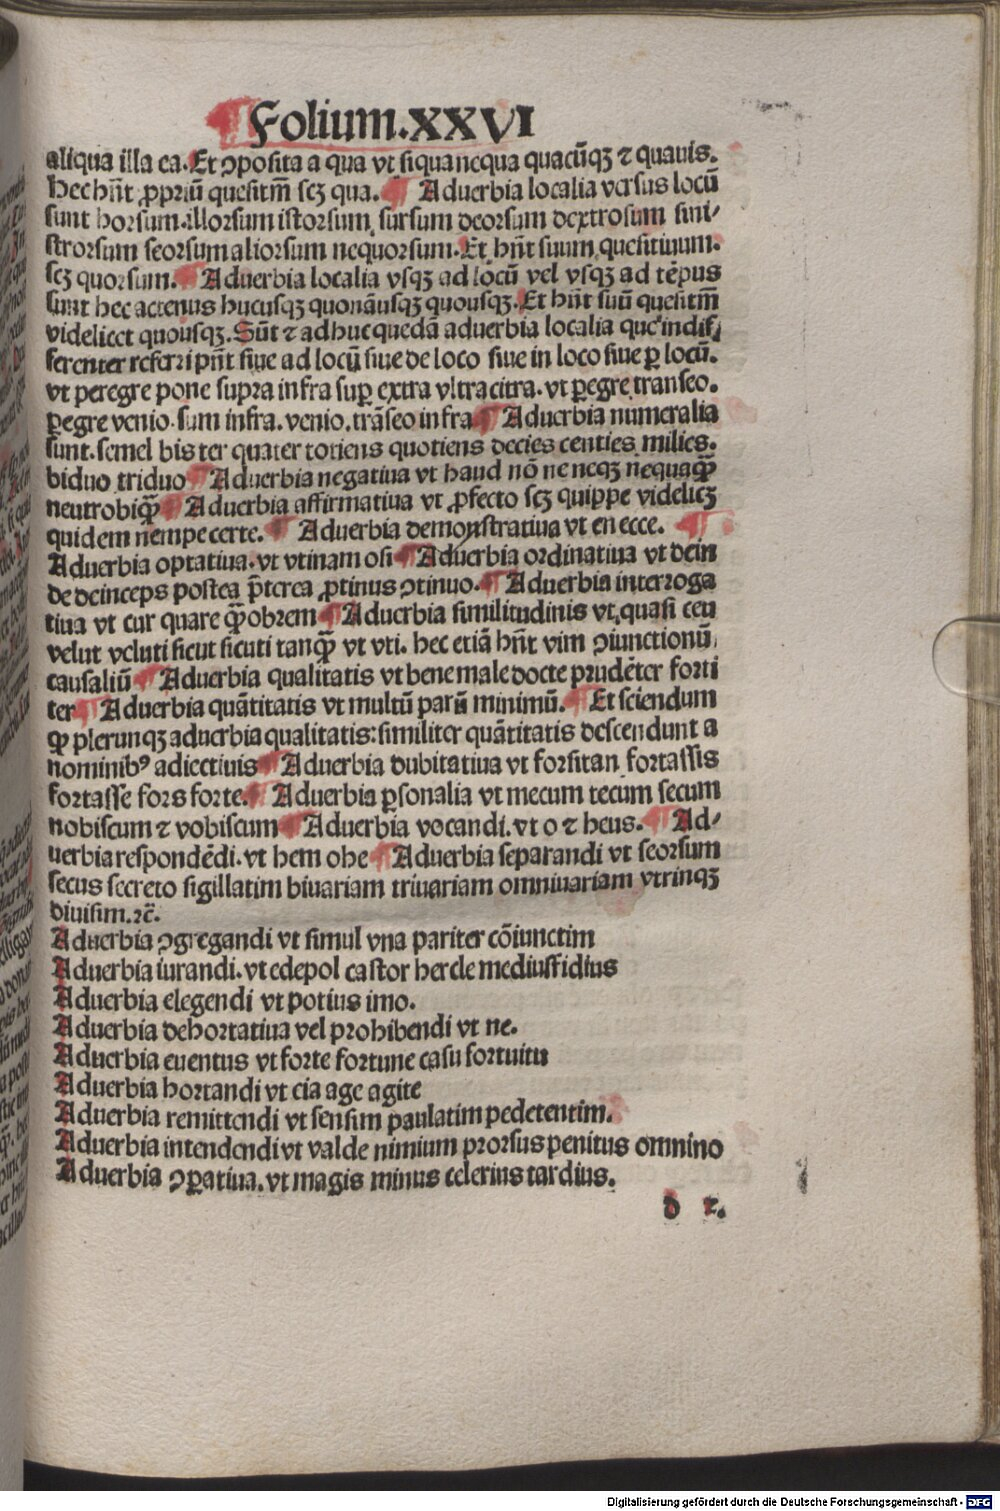 ¶ Folium.XXVI
aliqua illa ea. Et ↄposita a qua vt siqua nequa quacūqꝫ ⁊ quauis.
Hec hn̄t ꝓpriū quesitm̄ scꝫ qua. ¶ Aduerbia localia versus locū
sunt horsum.illorsum istorsum sursum deorsum dextrosum sini⸗
strorsum seorsum aliorsum nequorsum. Et hn̄t suum quesitiuum.
scꝫ quorsum. ¶ Aduerbia localia vsqꝫ ad locū vel vsqꝫ ad tēpus
sunt hec actenus hucusqꝫ quonāusqꝫ quousqꝫ. Et hn̄t suū quesitm̄
videlicet quousqꝫ. Sūt ⁊ adhuc quedā aduerbia localia que indif⸗
ferenter referri pn̄t siue ad locū siue de loco siue in loco siue ꝑ locū.
vt peregre pone supra infra suꝑ extra vltra citra. vt ꝑegre transeo.
ꝑegre venio. sum infra. venio. trāseo infra ¶ Aduerbia numeralia
sunt. semel bis ter quater totiens quotiens decies centies milies.
biduo triduo ¶ Aduerbia negatiua vt haud nō ne neqꝫ nequaꝗ̄
neutrobiꝗ̄ ¶ Aduerbia affirmatiua vt ꝓfecto scꝫ quippe videlicꝫ
quidem nempe certe. ¶ Aduerbia demonstratiua vt en ecce. ¶
Aduerbia optatiua. vt vtinam osi ¶ Aduerbia ordinatiua vt dein
de deinceps postea p̄terea ꝓtinus ↄtinuo. ¶ Aduerbia interroga
tiua vt cur quare ꝗ̄obrem ¶ Aduerbia similitudinis vt quasi ceu
velut veluti sicut sicuti tanꝗ̄ vt vti. hec etiā hn̄t vim ↄiunctionū
causaliū ¶ Aduerbia qualitatis vt bene male docte prudēter forti
ter ¶ Aduerbia quātitatis vt multū parū minimū. ¶ Et sciendum
ꝙ plerunqꝫ aduerbia qualitatis: similiter quātitatis descendunt a
nominibꝰ adiectiuis ¶ Aduerbia dubitatiua vt forsitan fortassis
fortasse fors forte. ¶ Aduerbia ꝑsonalia vt mecum tecum secum
nobiscum ⁊ vobiscum ¶ Aduerbia vocandi. vt o ⁊ heus. ¶ Ad⸗
uerbia respondēdi. vt hem ohe ¶ Aduerbia separandi vt seorsum
secus secreto sigillatim bivariam trivariam omnivariam vtrinqꝫ
diuisim. ⁊c̄.
Aduerbia ↄgregandi vt simul vna pariter cōiunctim
Aduerbia iurandi. vt edepol castor hercle mediusfidius
Aduerbia elegendi vt potius imo.
Aduerbia dehortatiua vel prohibendi vt ne.
Aduerbia euentus vt forte fortune casu fortuitu
Aduerbia hortandi vt eia age agite
Aduerbia remittendi vt sensim paulatim pedetentim.
Aduerbia intendendi vt valde nimium prorsus penitus omnino
Aduerbia ↄꝑatiua. vt magis minus celerius tardius.
d
Digitalisierung gefördert durch die Deutsche Forschungsgemeinschaft - DFG